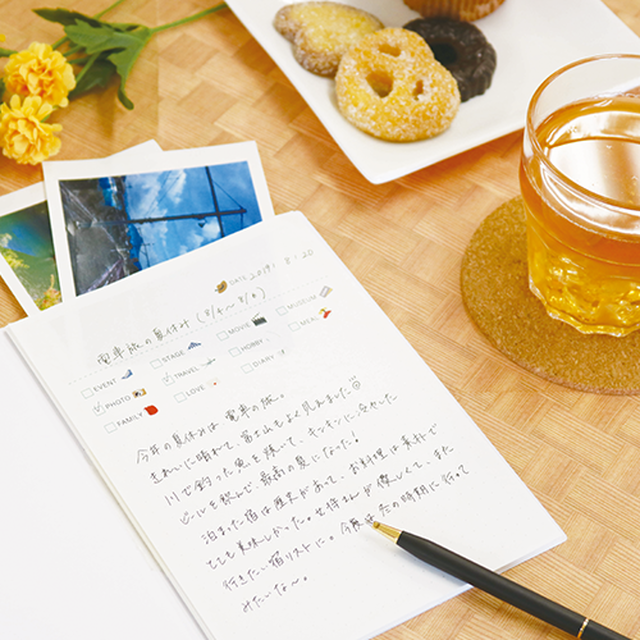 DATE 2019. 8. 20
電車旅の夏休み (8/4〜8/6)
EVENT STAGE MOVIE MUSEUM
PHOTO TRAVEL HOBBY MEAL
FAMILY LOVE DIARY
今年の夏休みは 電車の旅。
きれいに晴れて、富士山もよく見れました
川で釣った魚を焼いて、キンキンに冷やした
ビールを飲んで 最高の夏になった!
泊まった宿は歴史があって、お料理は素朴で
とても美味しかった。女将さんが優しくて、また
行きたい宿リストに。今度は の時期に行って
みたいな〜。